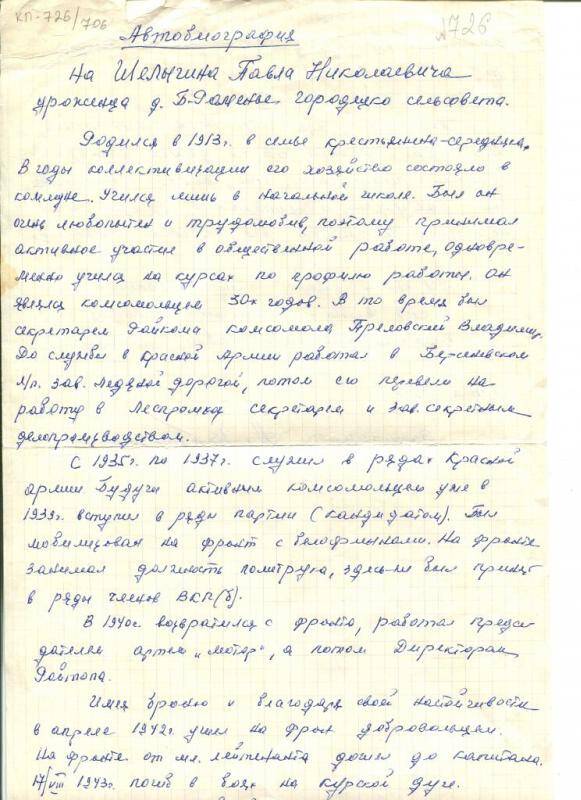 КП-726/706
№726
Автобиография
на Шелыгина Павла Николаевича
уроженца д. Б-Раменье Городецко сельсовета.
Родился в 1913г. в семье крестьянина-середняка.
В годы коллективизации его хозяйство состояло в
коммуне. Учился лишь в начальной школе. Был он
очень любопытен и трудолюбив, поэтому принимал
активное участие в общественной работе, одновре-
менно учился на курсах по профилю работы. Он
являлся комсомольцем 30х годов. В то время был
секретарем Райкома комсомола Владимир.
До службы в Красной Армии работал в
л/п. зав. ледяной дорогой, потом его перевели на
работу в Леспромхоз секретарем и зав. секретным
делопроизводством.
С 1935г. по 1937г. служил в рядах Красной
армии Будучи активным комсомольцем уже в
1939г. вступил в ряды партии (кандидатом). Был
мобилизован на фронт с белофиннами. На фронте
занимал должность политрука, здесь-же был принят
в ряды членов ВКП(б).
В 1940г. возвратился с фронта, работал предсе-
дателем артели „мотор", а потом Директором
Райтопа.
Имея броню и благодаря своей настойчивости
в апреле 1942г. ушел на фронт добровольцем.
На фронте от мл. лейтенанта дошел до капитана.
17/VIII 1943г. погиб в боях на курской дуге.